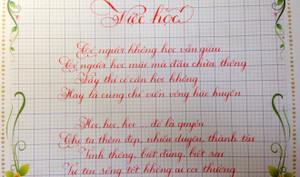 Việc học
Có người không học vẫn giàu
Có người học mãi mà đầu chửa thông
Vậy thì có cần học không
Hay là cũng chỉ viển vông hão huyền
Học, học, học - đó là quyền
Cho ta thêm đẹp, nhiều duyên, thành tài
Tinh thông, biết đúng, biết sai
Tự tin, sống tốt không ai coi thường